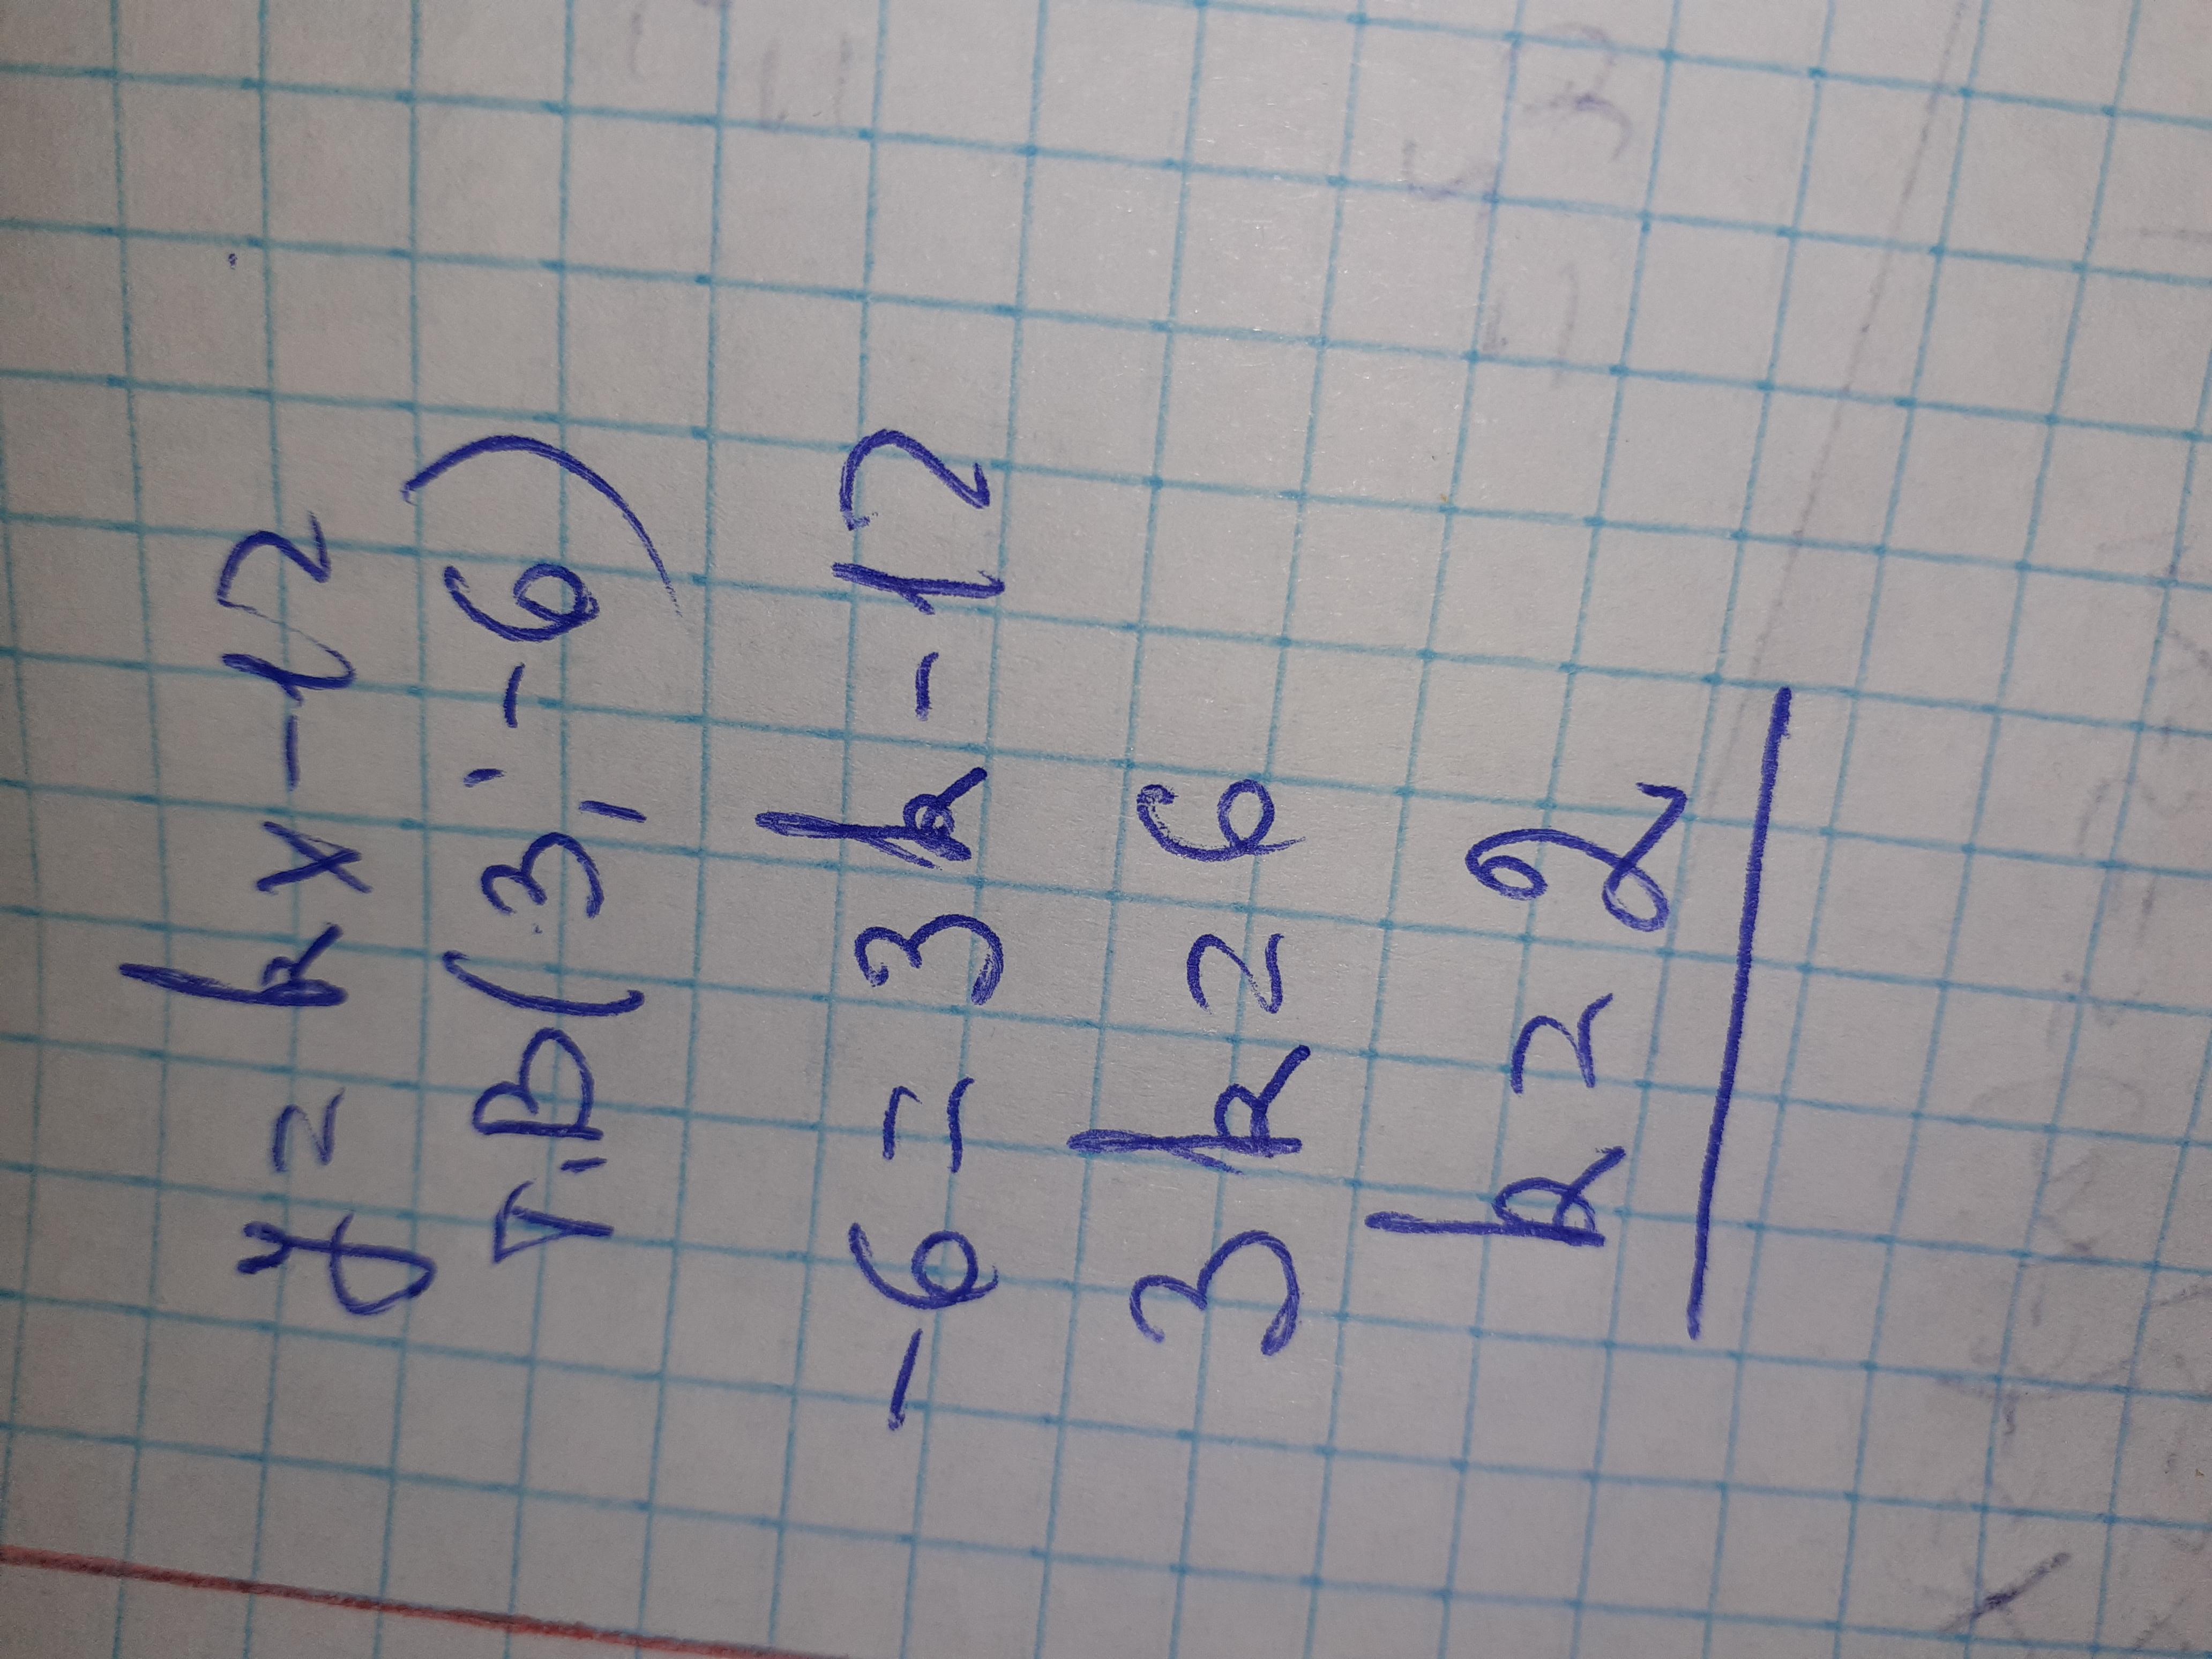 y = kx - 12
т. B(3; -6)
-6 = 3k - 12
3k = 6
k = 2